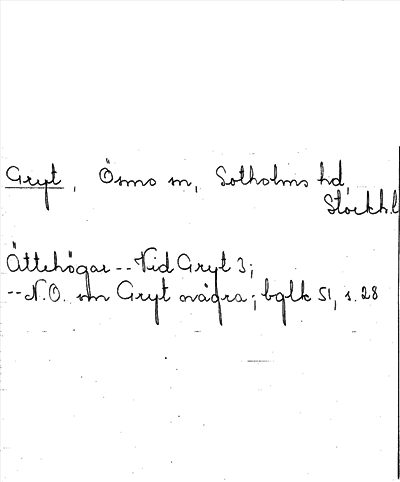 Gryt, Ösmo sn, Sotholms hd,
Stockh.l
Ättehögar -- Vid Gryt 3;
-- N.O. om Gryt några; bglk 51, s. 28